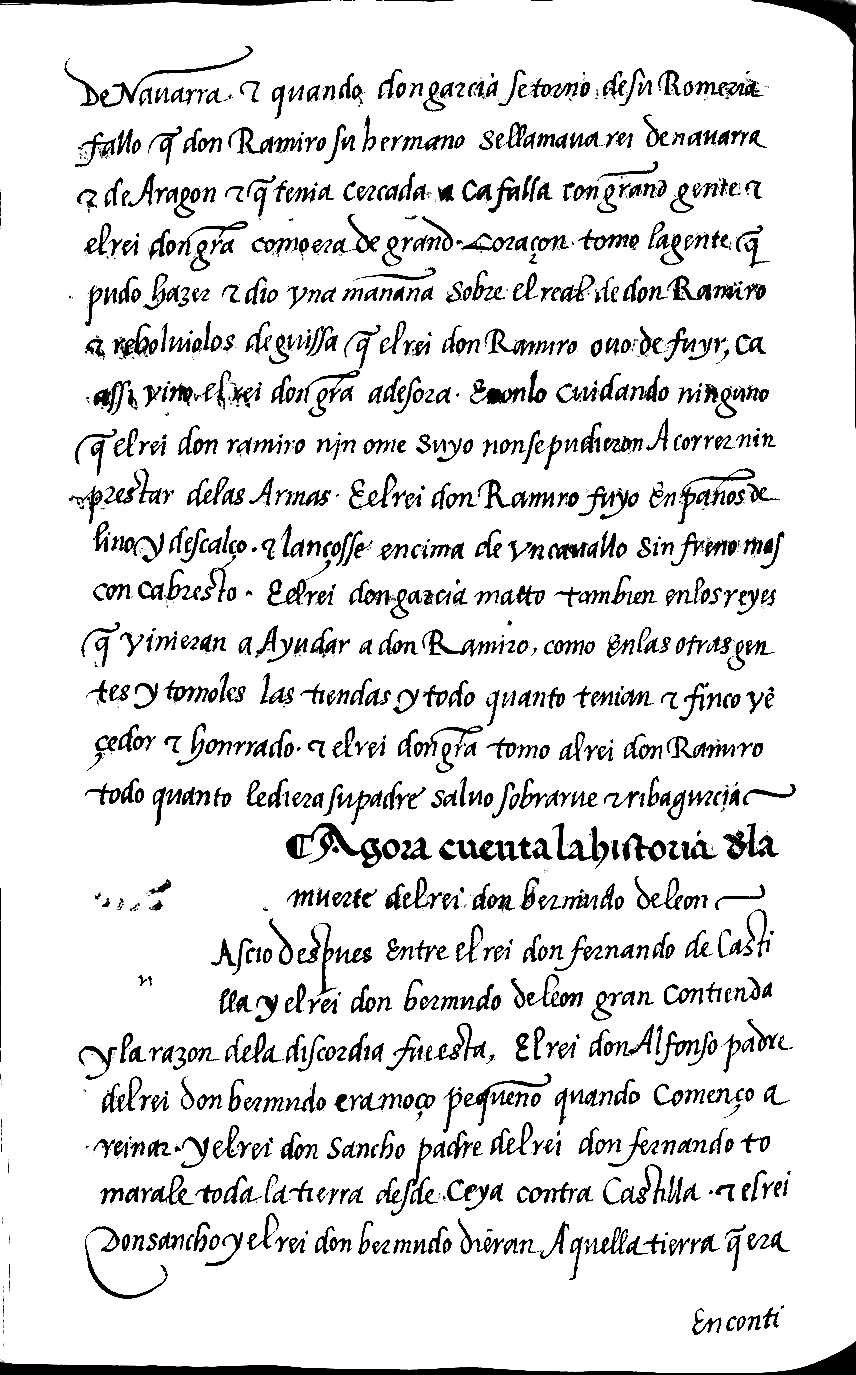 De Navarra. & quando don garcia se torno de su Romeria
fallo q̃ don Ramiro su hermano se llamava rei de navarra
& de Aragon & q̃ tenia cercada a Cafalla con grand gente &
el rei don gr̃a como era de grand. Coraçon tomo la gente q̃
pudo hazer & dio vna mañana sobre el real de don Ramiro
& rebolviolos de guissa q̃ el rei don Ramiro ovo de fuyr, Ca
assi vino el rei don gr̃a adesora. E non lo Cuidando ninguno
q̃ el rei don ramiro nin ome suyo non se pudieron Acorrer nin
prestar de las Armas. E el rei don Ramiro fuyo En paños de
lino y descalço. & lançosse encima de vn cavallo sin freno mas
con cabresto. E el rei don garcia matto tambien en los reyes
q̃ vinieran a Ayudar a don Ramiro, como En las otras gen
tes y tomoles las tiendas y todo quanto tenian & finco vẽ
çedor & honrrado. & el rei don gr̃a tomo al rei don Ramiro
todo quanto le diera su padre salvo sobrarve & ribagurcia
¶ Agora cuenta la historia d̃la
muerte del rei don bermudo de leon
n
Ascio Despues Entre el rei don fernando de Casti
lla y el rei don bermudo de leon gran Contienda
y la razon de la discordia fue esta, El rei don Alfonso padre
del rei don bermudo era moço pequeño quando Començo a
reinar. y el rei don Sancho padre del rei don fernando to
marale toda la tierra desde Ceya contra Castilla. & el rei
Don sancho y el rei don bermudo dieran Aquella tierra q̃ era
En conti